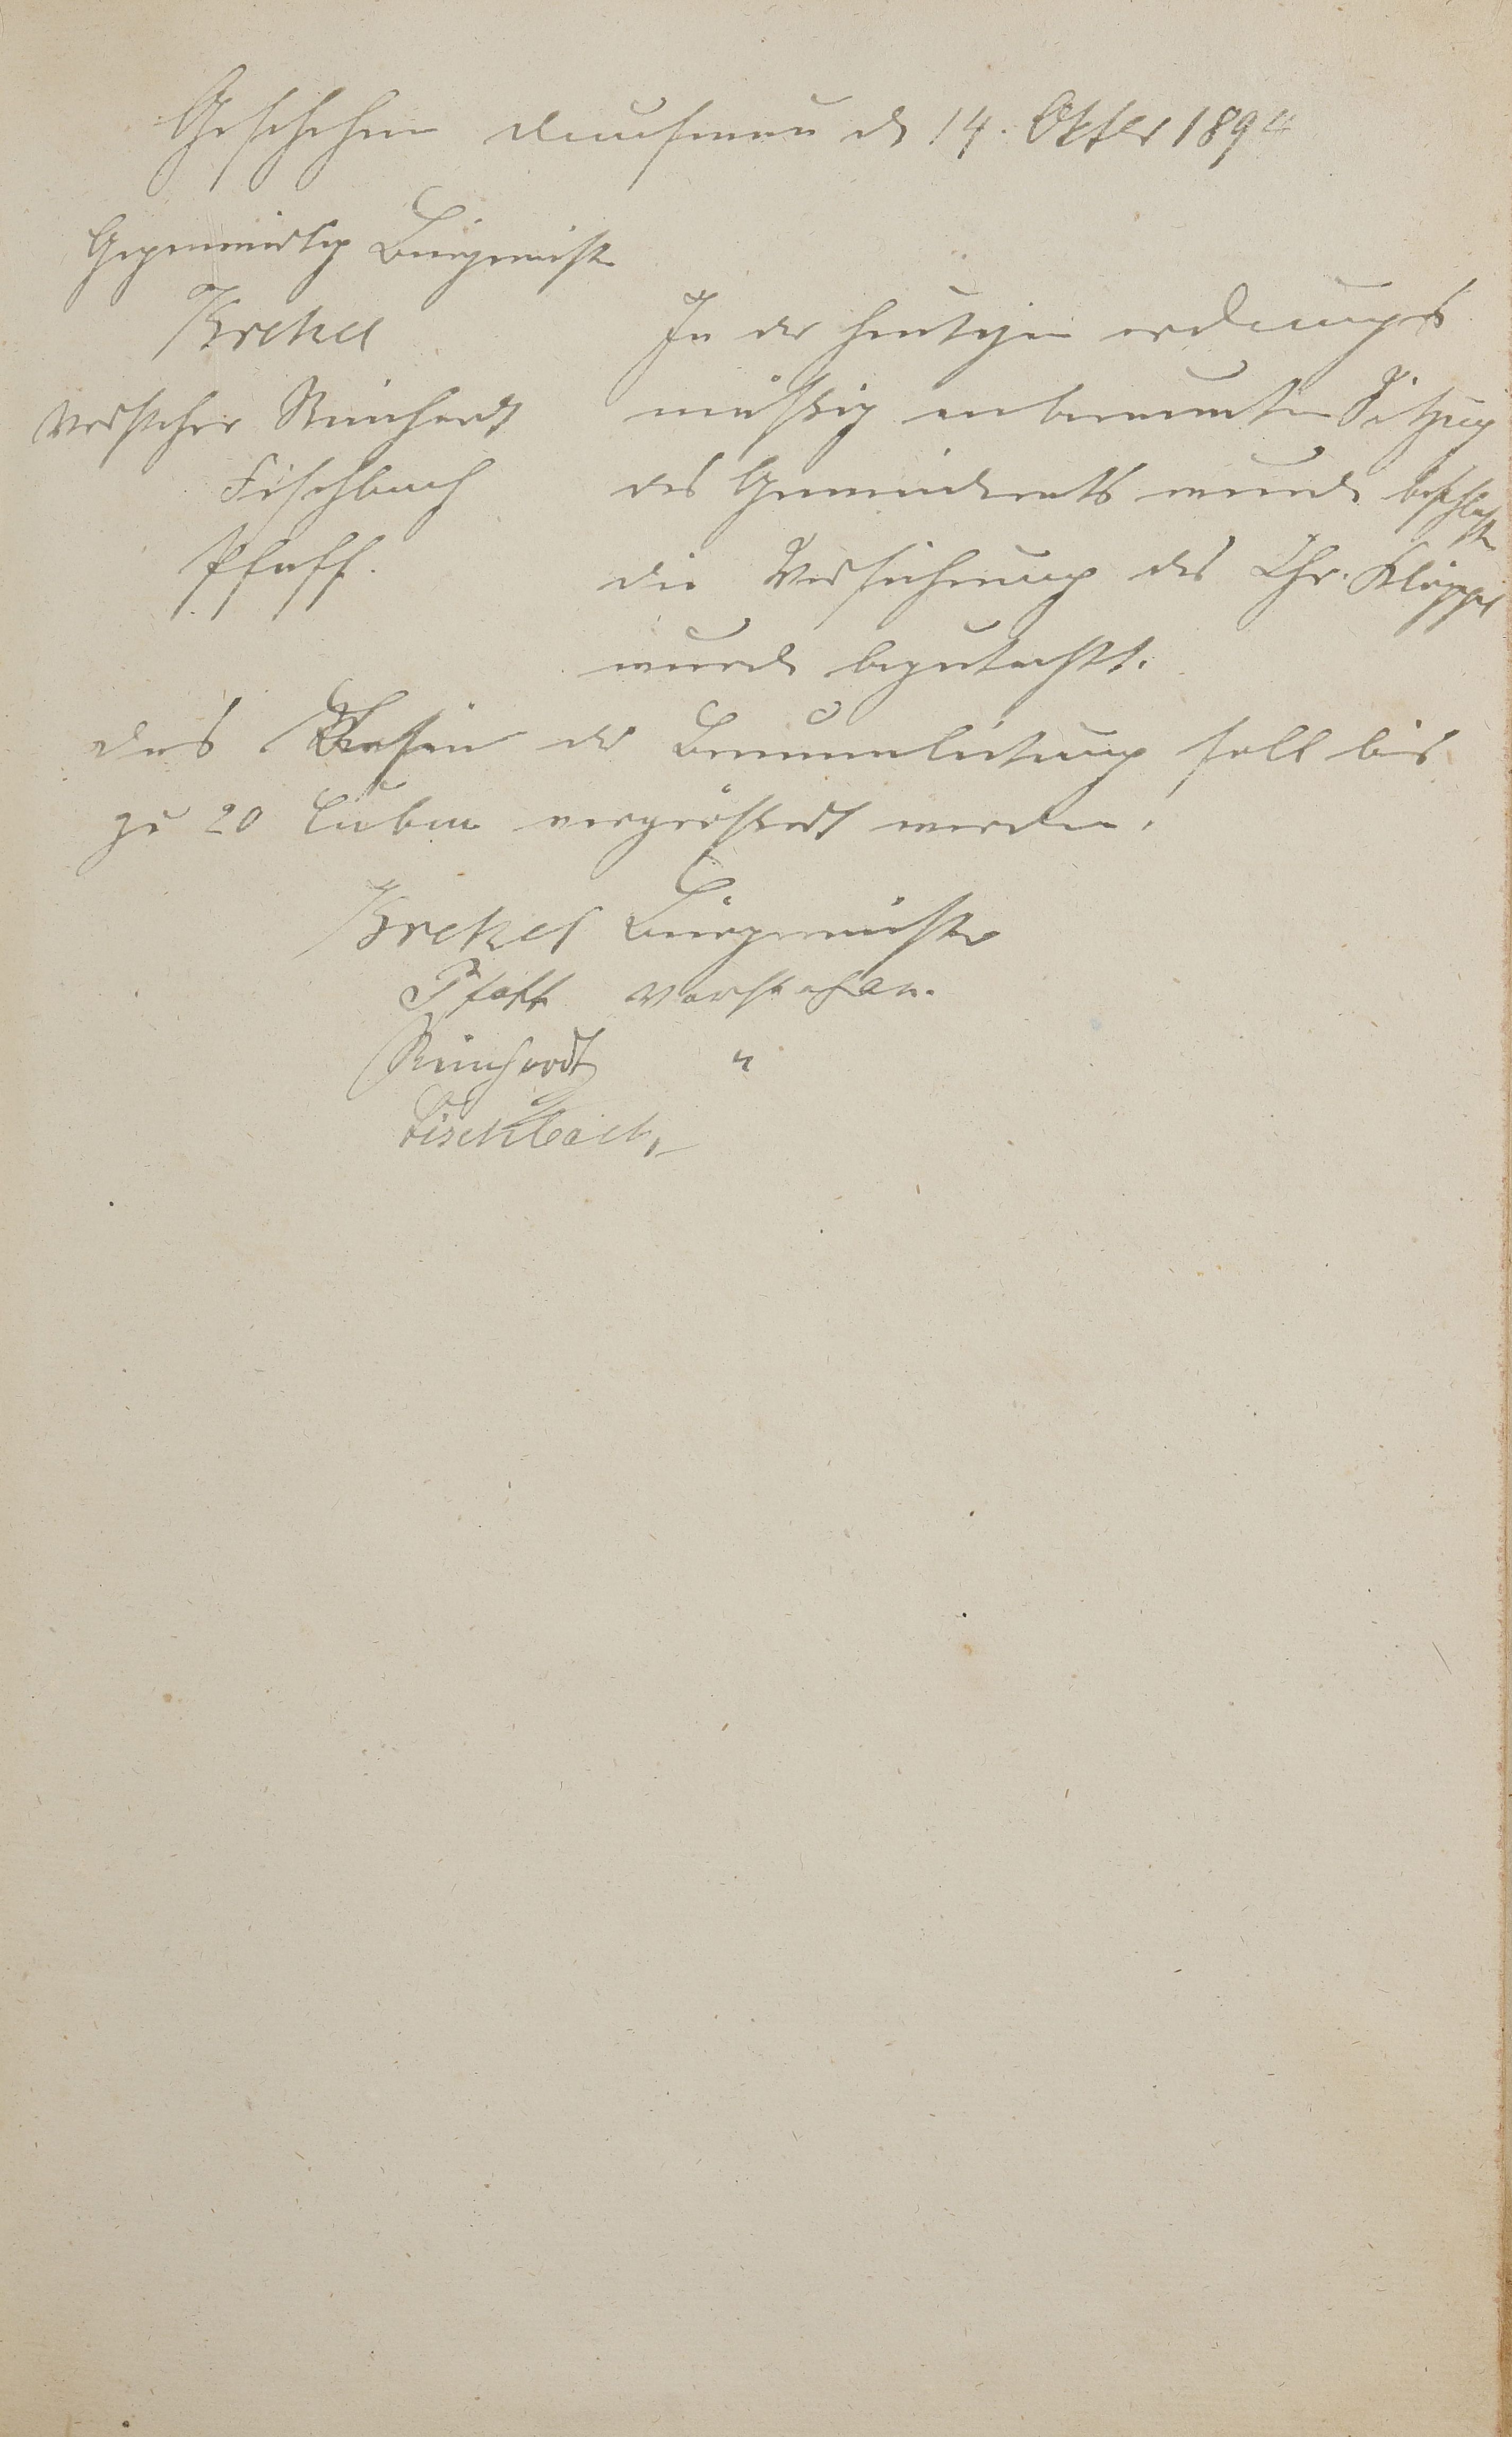 Geschehen Dausenau d 14. Oktbr 1894
Gegenwärtig Bürgermeister
Krekel
Vorsteher Reinhardt
Fischbach
Pfaff.
In der heutigen ordnungs
mäßig anberaumten Sitzung
des Gemeinderats wurde beschlossen
die Versicherung des Chr. Klöppel
wurde begutachtet.
das Basin der Brunnenleitung soll bis
zu 20 Cubm vergrößert werden.
Krekel Bürgermeister
Pfaff Vorsteher.
Reinhardt "
Fischbach,